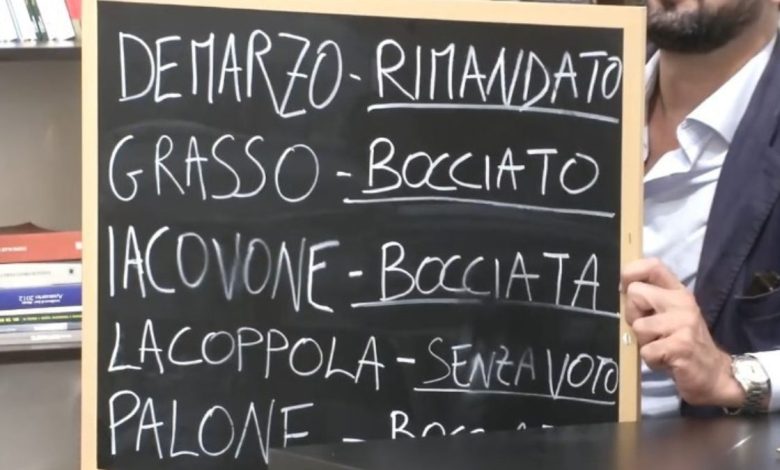 DEMARZO - RIMANDATO
GRASSO - BOCCIATO
IACOVONE - BOCCIATA
LACOPPOLA - SENZA VOTO
PALONE -